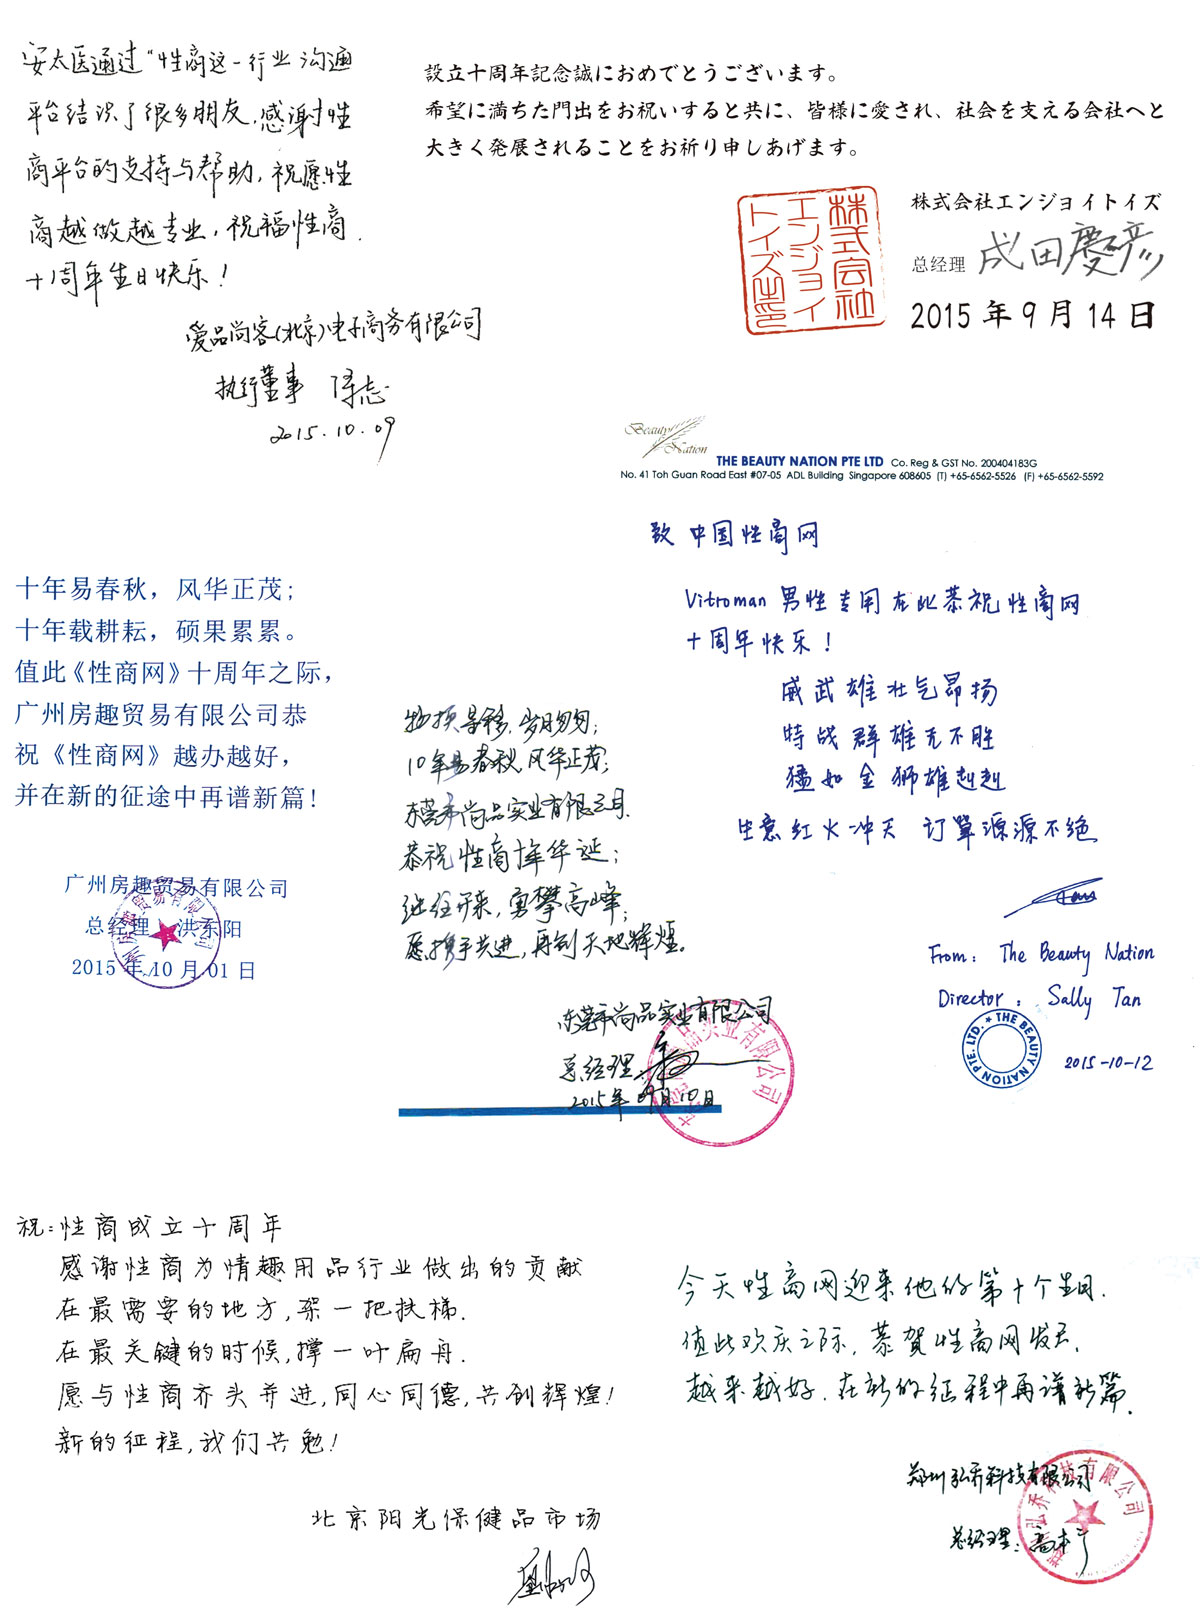 安太医通过“性商这一行业沟通
平台结识了很多朋友,感谢性
商平台的支持与帮助,祝愿性
商越做越专业,祝福性商.
十周年生日快乐!
爱品尚客(北京)电子商务有限公司
执行董事
2015.10.09
設立十周年記念誠におめでとうございます。
希望に満ちた門出をお祝いすると共に、皆様に愛され、社会を支える会社へと
大きく発展されることをお祈り申しあげます。
株式会社
エンジョイ
トイズ
株式会社エンジョイトイズ
总经理 成田慶彦
2015年9月14日
Beauty
Nation
THE BEAUTY NATION PTE LTD Co. Reg & GST No. 200404183G
No. 41 Toh Guan Road East #07-05 ADL Building Singapore 608605 (T) +65-6562-5526 (F) +65-6562-5592
致 中国性商网
Vitroman 男性专用在此恭祝性商网
十周年快乐!
威武雄壮气昂扬
特战群雄无不胜
猛如金狮雄赳赳
生意红火冲天 订單源源不绝
From: The Beauty Nation
Director: Sally Tan
THE BEAUTY NATION PTE. LTD.
2015-10-12
十年易春秋，风华正茂;
十年载耕耘，硕果累累。
值此《性商网》十周年之际，
广州房趣贸易有限公司恭
祝《性商网》越办越好，
并在新的征途中再谱新篇!
广州房趣贸易有限公司
总经理 洪东阳
2015年10月01日
物换星移,岁月匆匆;
10年易春秋,风华正茂;
东莞市尚品实业有限公司.
恭祝性商十年华诞;
继往开来,勇攀高峰;
愿携手共进,再创天地辉煌。
东莞市尚品实业有限公司
总经理
2015年09月10日
祝:性商成立十周年
感谢性商为情趣用品行业做出的贡献
在最需要的地方,架一把扶梯.
在最关键的时候,撑一叶扁舟.
愿与性商齐头并进,同心同德,共创辉煌!
新的征程,我们共勉!
北京阳光保健品市场
今天性商网迎来他的第十个生日.
值此欢庆之际,恭贺性商网发展
越来越好.在新的征程中再谱新篇.
郑州弘乔科技有限公司
总经理: